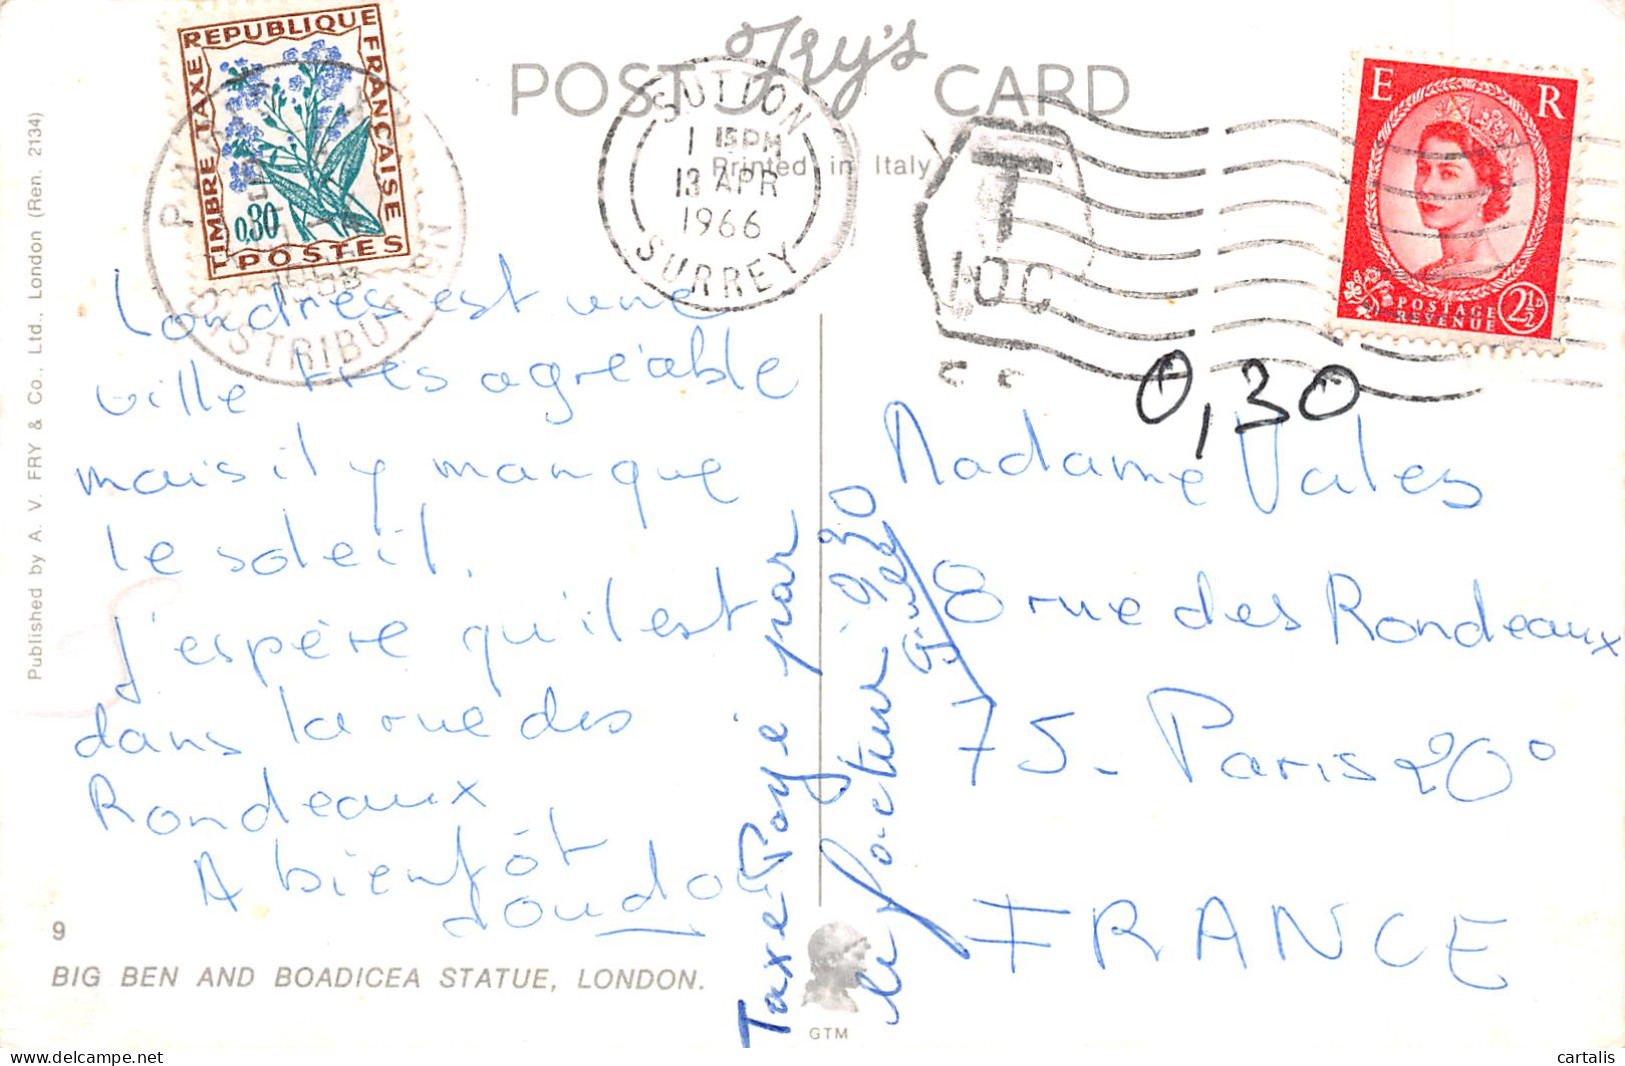 Fry's
POST CARD
Printed in Italy
REPUBLIQUE FRANÇAISE
TIMBRE TAXE
0,30
POSTES
DISTRIBUTION
SUTTON
1 15PM
13 APR
1966
SURREY
T
10C
E R
POSTAGE
REVENUE
2½D
0,30
Londres est une
ville très agréable
mais il y manque
le soleil.
J'espère qu'il est
dans la rue des
Rondeaux
A bientôt
Madame Vales
8 rue des Rondeaux
75 - Paris 20°
FRANCE
Taxe Payé par
le facteur : 0,30
Published by A. V. FRY & Co., Ltd., London (Ren. 2134)
9
BIG BEN AND BOADICEA STATUE, LONDON.
GTM
cartalis